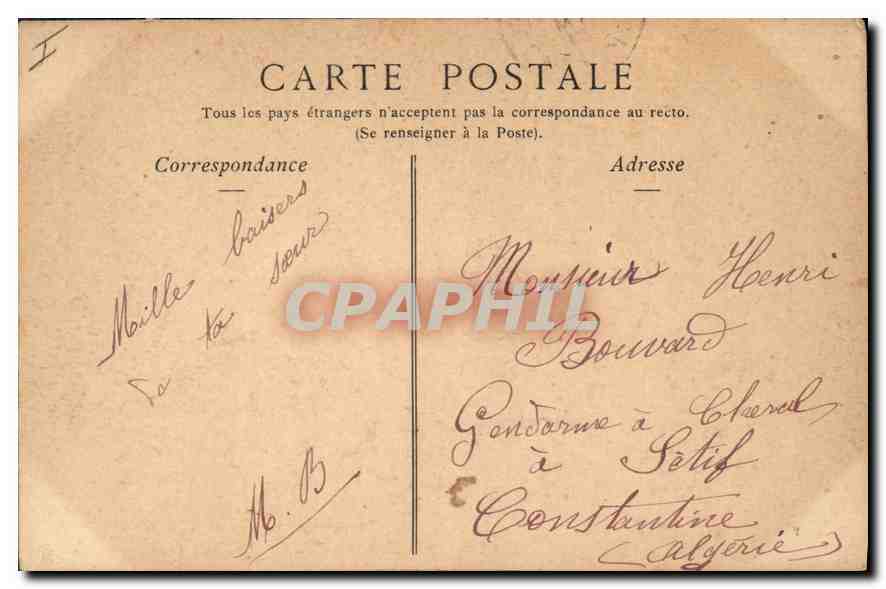 I
CARTE POSTALE
Tous les pays étrangers n'acceptent pas la correspondance au recto.
(Se renseigner à la Poste).
Correspondance
Mille baisers
de ta sœur
M. B
Adresse
Monsieur Henri
Bouvard
Gendarme à Cheval
à Sétif
Constantine
(Algérie)
CPAPHIL